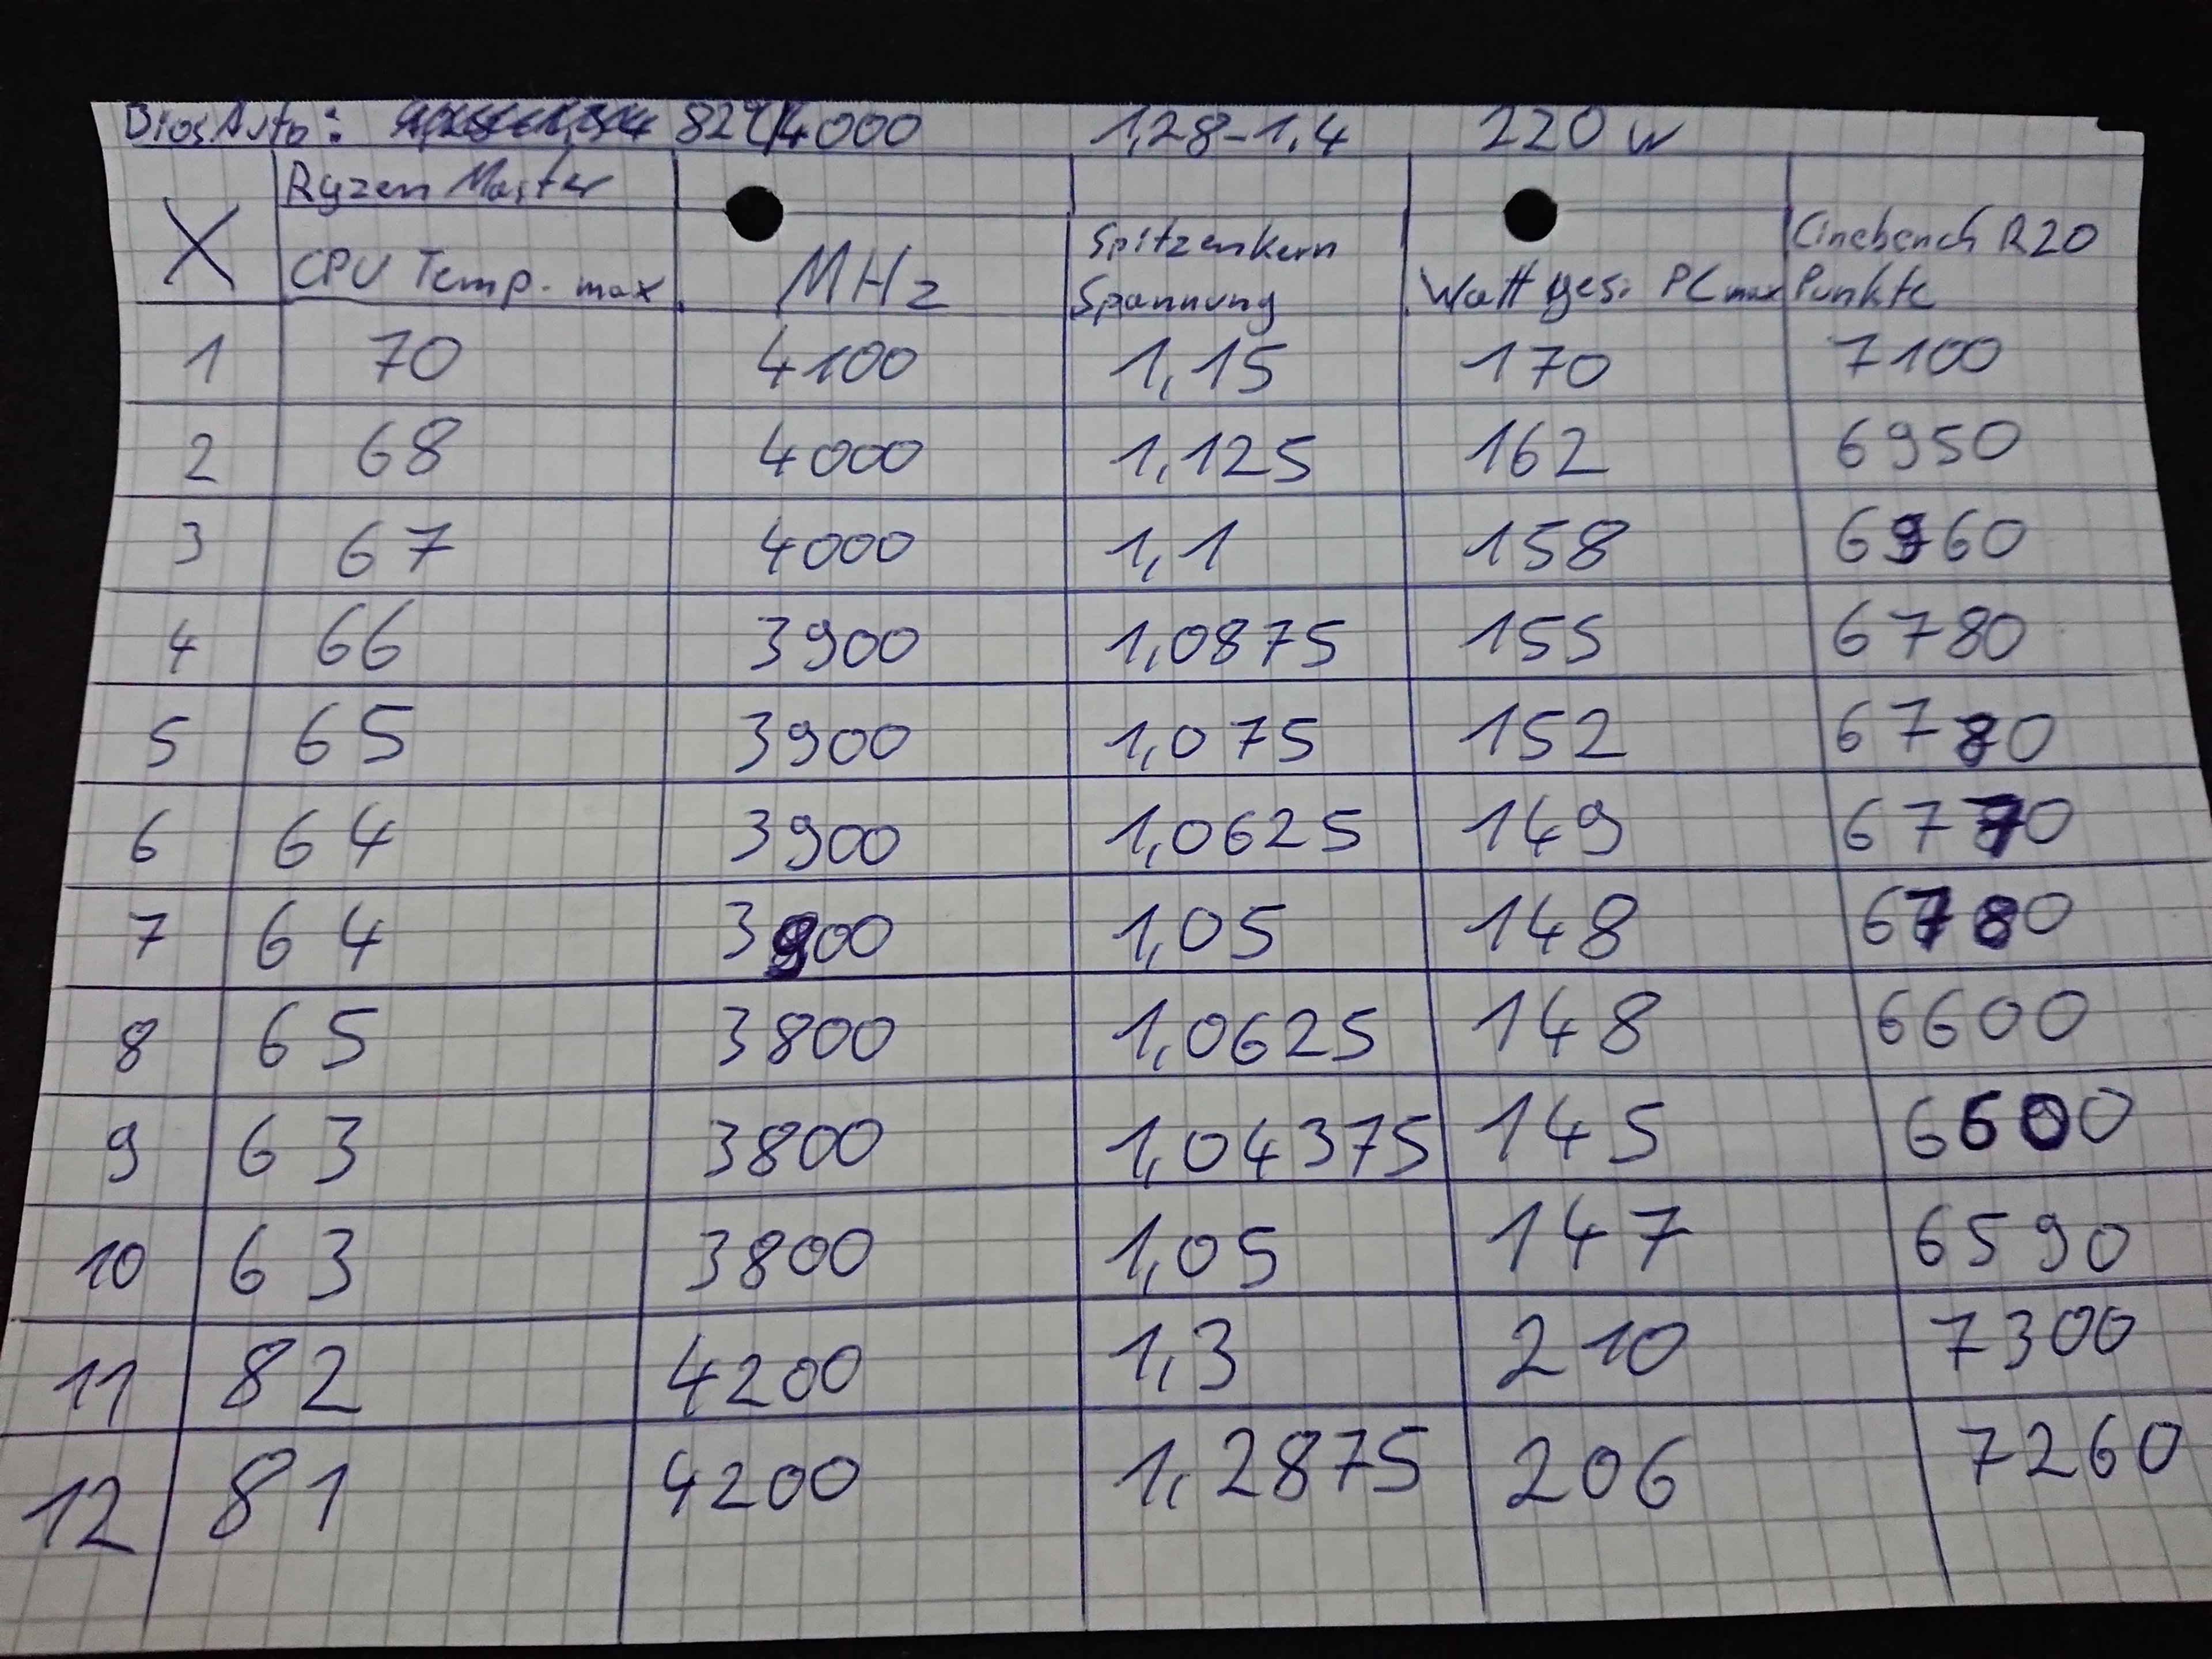 Bios Auto: 82°/4000 1,28-1,4 220 W
Ryzen Master
X CPU Temp. max MHz Spitzenkern Spannung Watt ges. PC max Cinebench R20 Punkte
1 70 4100 1,15 170 7100
2 68 4000 1,125 162 6950
3 67 4000 1,1 158 6960
4 66 3900 1,0875 155 6780
5 65 3900 1,075 152 6780
6 64 3900 1,0625 149 6770
7 64 3900 1,05 148 6780
8 65 3800 1,0625 148 6600
9 63 3800 1,04375 145 6600
10 63 3800 1,05 147 6590
11 82 4200 1,3 210 7300
12 81 4200 1,2875 206 7260